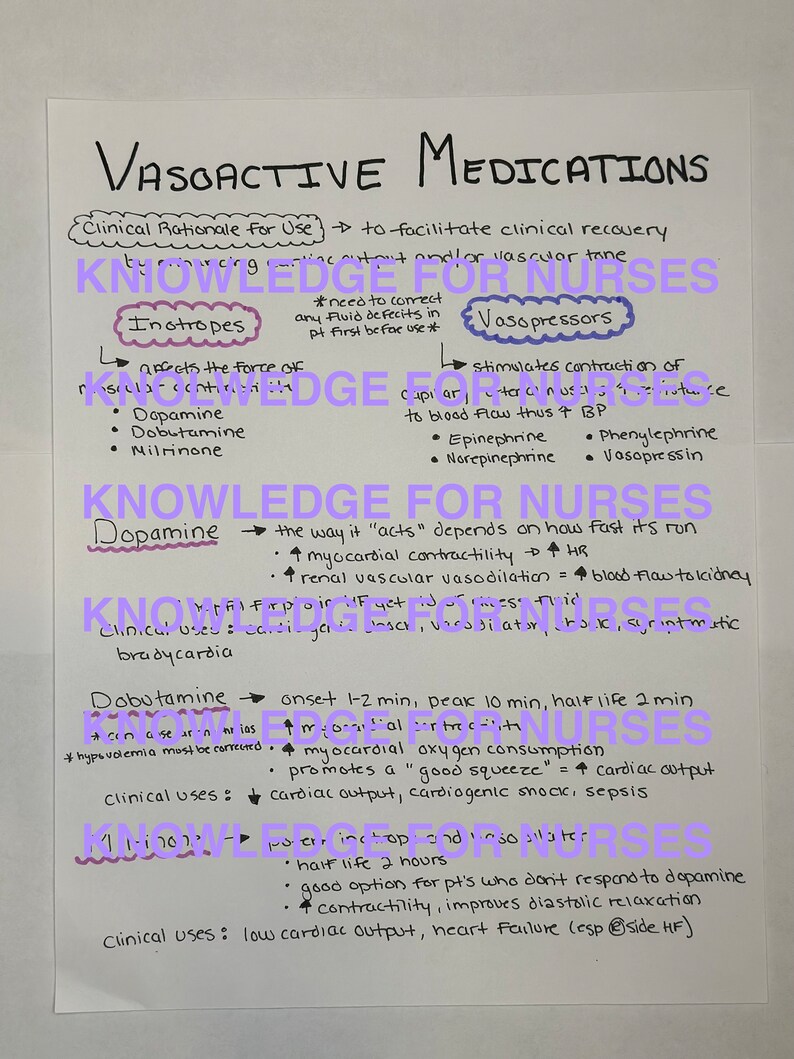 VASOACTIVE MEDICATIONS
Clinical Rationale for Use → to facilitate clinical recovery
by enhancing cardiac output and/or vascular tone
KNIOWLEDGE FOR NURSES
*need to correct
any fluid defecits in
pt first before use*
Inotropes
↳ affects the force of
muscular contractility
• Dopamine
• Dobutamine
• Milrinone
Vasopressors
↳ stimulates contraction of
capillary & arterial muscles ↑ resistance
to blood flow thus ↑ BP
• Epinephrine • Phenylephrine
• Norepinephrine • Vasopressin
KNOLWEDGE FOR NURSES
KNOWLEDGE FOR NURSES
Dopamine → the way it "acts" depends on how fast its run
• ↑ myocardial contractility → ↑ HR
• ↑ renal vascular vasodilation = ↑ blood flow to kidney
helpful for pts in HF get rid of excess fluid
KNOWLEDGE FOR NURSES
Clinical uses: cardiogenic shock, vasodilatory shock, symptmatic
bradycardia
Dobutamine → onset 1-2 min, peak 10 min, half life 2 min
*can cause arrhythmias
*hypovolemia must be corrected
• ↑ myocardial contractility
KNOWLEDGE FOR NURSES
• ↑ myocardial oxygen consumption
• promotes a "good squeeze" = ↑ cardiac output
clinical uses: ↓ cardiac output, cardiogenic shock, sepsis
Milrinone → potent inotrope and vasodilator
KNOWLEDGE FOR NURSES
• half life 2 hours
• good option for pt's who don't respond to dopamine
• ↑ contractility, improves diastolic relaxation
clinical uses: low cardiac output, heart failure (esp Ⓡside HF)